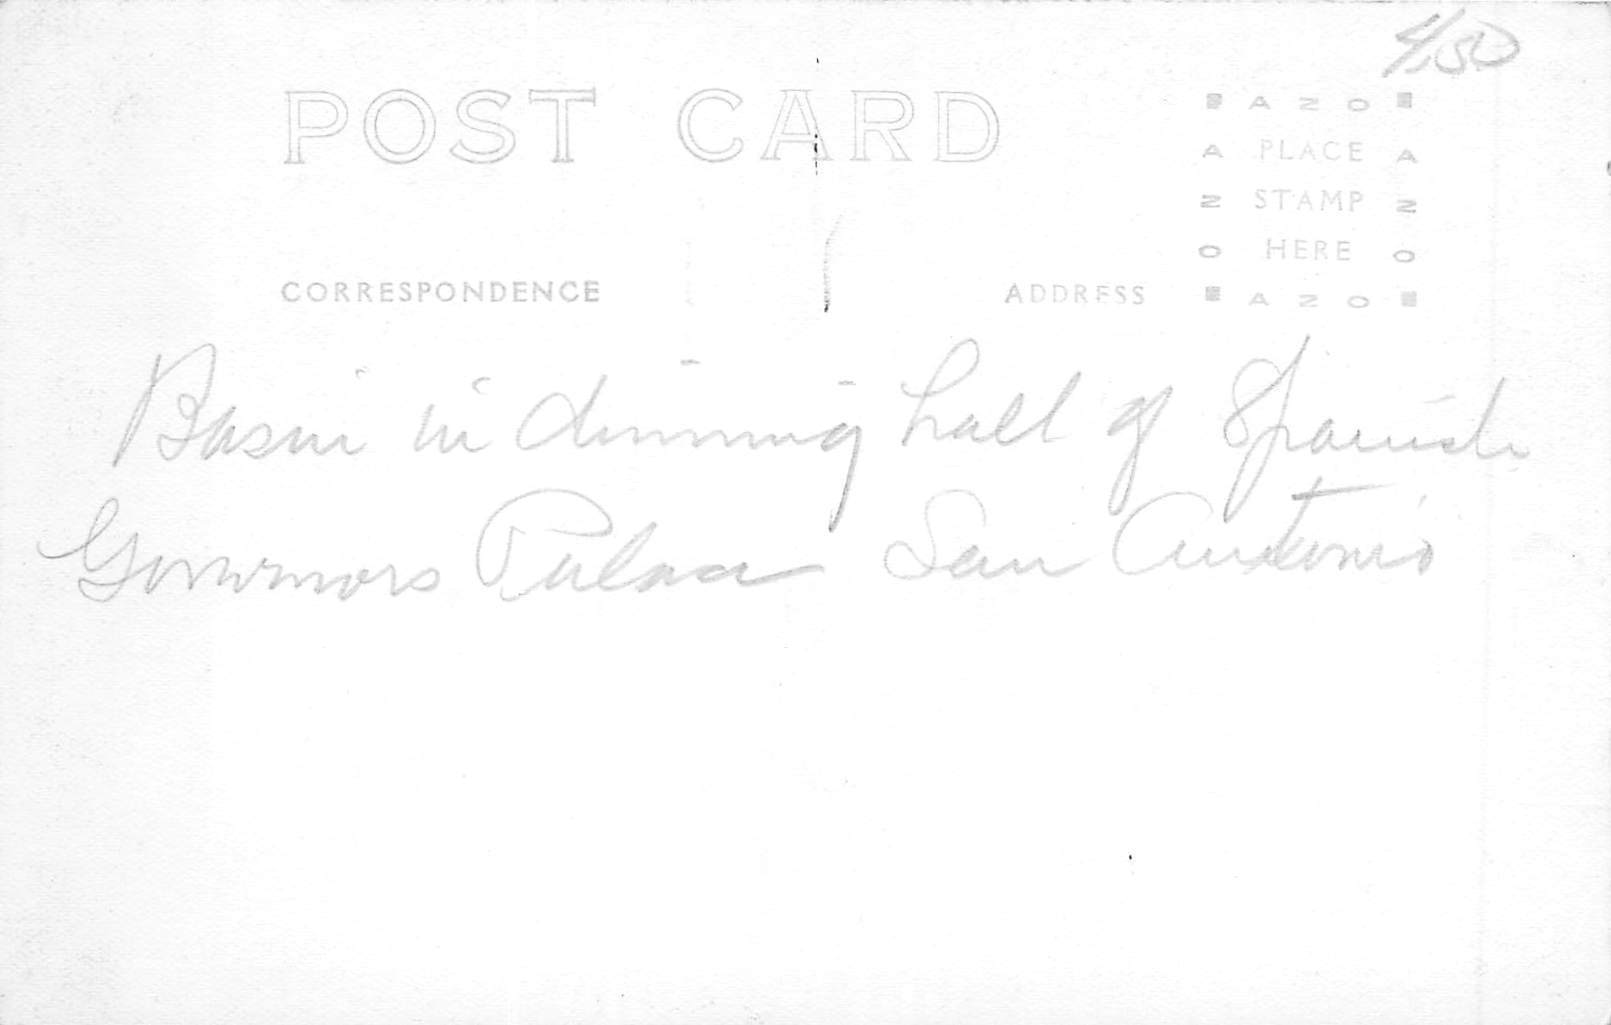 4/50
POST CARD
AZO
A PLACE A
Z STAMP Z
O HERE O
AZO
CORRESPONDENCE
ADDRESS
Basin in dinning hall of Spanish
Governors Palace San Antonio